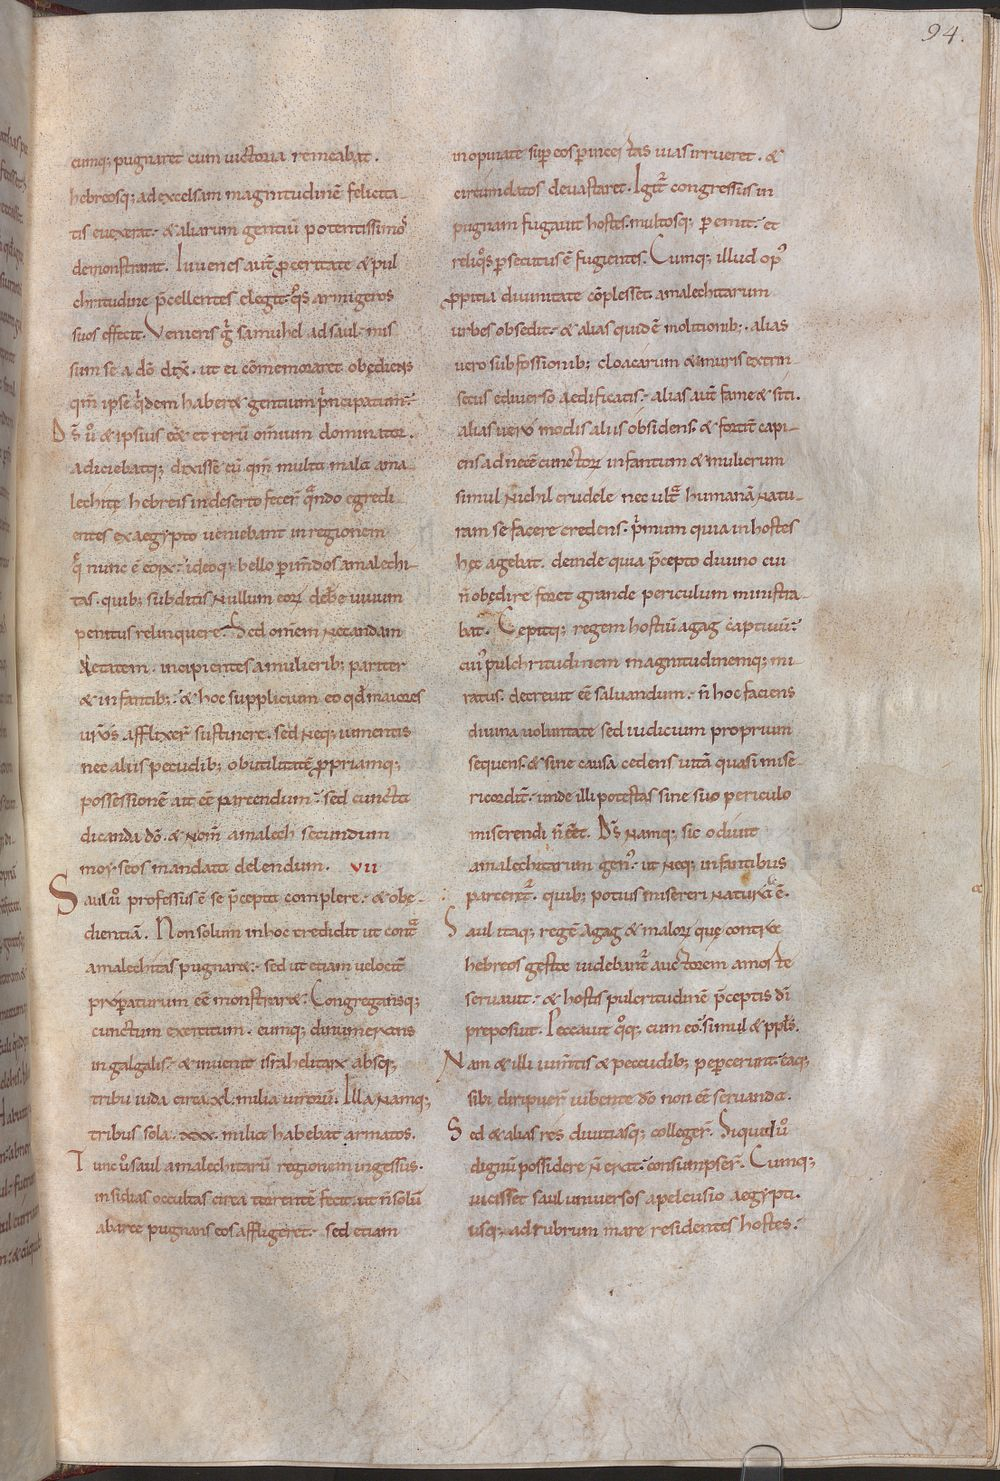 94.
cumq; pugnaret cum uictoria remeabat.
hebreosq; ad excelsam magnitudinē felicita-
tis euexerat. & aliarum gentiū potentissimoſ
demonstrarat. Iuuenes aut̄ p̄ceritate & pul
chritudine p̄cellentes elegit. q̊s armigeros
suos effecit. Veniens g̊ samuhel ad saul. mis
sum se a dō dix̄. ut ei cōmemoraret obędiens
qm̄ ipse q̇dem haberet gentium ṗncipatum.
Ds̄ u̇o & ipsius eēt et rerū omīum dominator.
adiciebatq; dixisse eū qm̄ multa mala ama
lechitę hebreis in deserto fecer̄ q̄ndo egredi
entes ex aegypto ueniebant in regionem
q̄ nunc ē eorx. ideoq; bello perim̄dos amalechi-
tas. quib; subditis nullum eorx debere uiuum
penitus relinquere. Sed omēm necandam
aetatem. incipientes a mulierib; pariter
& infantib;. & hoc supplicium eo qd maiores
ur̄os afflixer̄ sustinere. sed neq; iumentis
nec aliis pecudib; ob utilitatē p̄priamq;
possessionē ait eē parcendum. sed cuncta
dicanda dō. & nom̄ amalech secundum
moyseos mandata delendum. VII
Saul u̇o professus ē se p̄cepta complere. & obę-
dientiā. Non solum in hoc credidit ut cont̄
amalechitas pugnaret. sed ut etiam uelocit̄
p̄paturum eē monstraret. Congregansq;
cunctum exercitum. eumq; dinumerans
in galgalis. & inuenit israhelitarx absq;
tribu iuda circa .xl. milia uirorū. Illa namq;
tribus sola .xxx. milia habebat armatos.
Tunc u̇o saul amalechitarū regionem ingressus.
insidias occultas circa torrentē fecit. ut n̄ solū
a parte pugnans eos affligeret. sed etiam
inopinate sup eos p uincītas uias irrueret. &
circūmdatos deuastaret. Igit̄ congressus in
pugnam fugauit hostes. multosq; peremit. et
reliq̊s psecutus ē fugientes. Cumq; illud op'
p̄pitia diuinitate cōplesset. amalechitarum
urbes obsedit. & alias quidē molitionib;. alias
uero subfossionib; cloacarum & muris extrin-
secus e diuerso aedificatis. alias aut̄ fame & siti.
alias uero modis aliis obsidens. & fortit̄ capi-
ens ad necē cunctorx infantum & mulierum
simul. Nichil crudele nec ult̄ humanā natu-
ram se facere credens. ṗmum quia in hostes
hęc agebat. deinde quia p̄cepto diuino cui
n̄ obędire foret grande periculum ministra-
bat. Cepitq; regem hostiū agag captiuū.
cui' pulchritudinem magnitudinemq; mi-
ratus. decreuit eē saluandum. n̄ hoc faciens
diuina uoluntate sed iudicium proprium
sequens. & sine causa cedens uitā quasi mise-
ricordit̄. unde illi potestas sine suo periculo
miserendi n̄ eēt. Ds̄ namq; sic odiuit
amalechitarum gen'. ut neq; infantibus
parceret̄. quib; potius misereri naturā ē.
Saul itaq; regē Agag & malorx quę contra
hebreos gesta uidebant̄ auctorem a morte
seruauit. & hostis pulcritudinē p̄ceptis dī
preposuit. Peccauit q̊q; cum eo simul & ppl̄s.
Nam & illi iumtis & peccudib; pepercerunt. eaq;
sibi diripuer̄ iubente dō non eē seruanda.
Sed & alias res diuitiasq; colleger̄. Si quid u̇o
dignū possidere n̄ erat. consumpser̄. Cumq;
uicisset saul uniuersos a pelusio aegypti.
usq; ad rubrum mare residentes hostes.